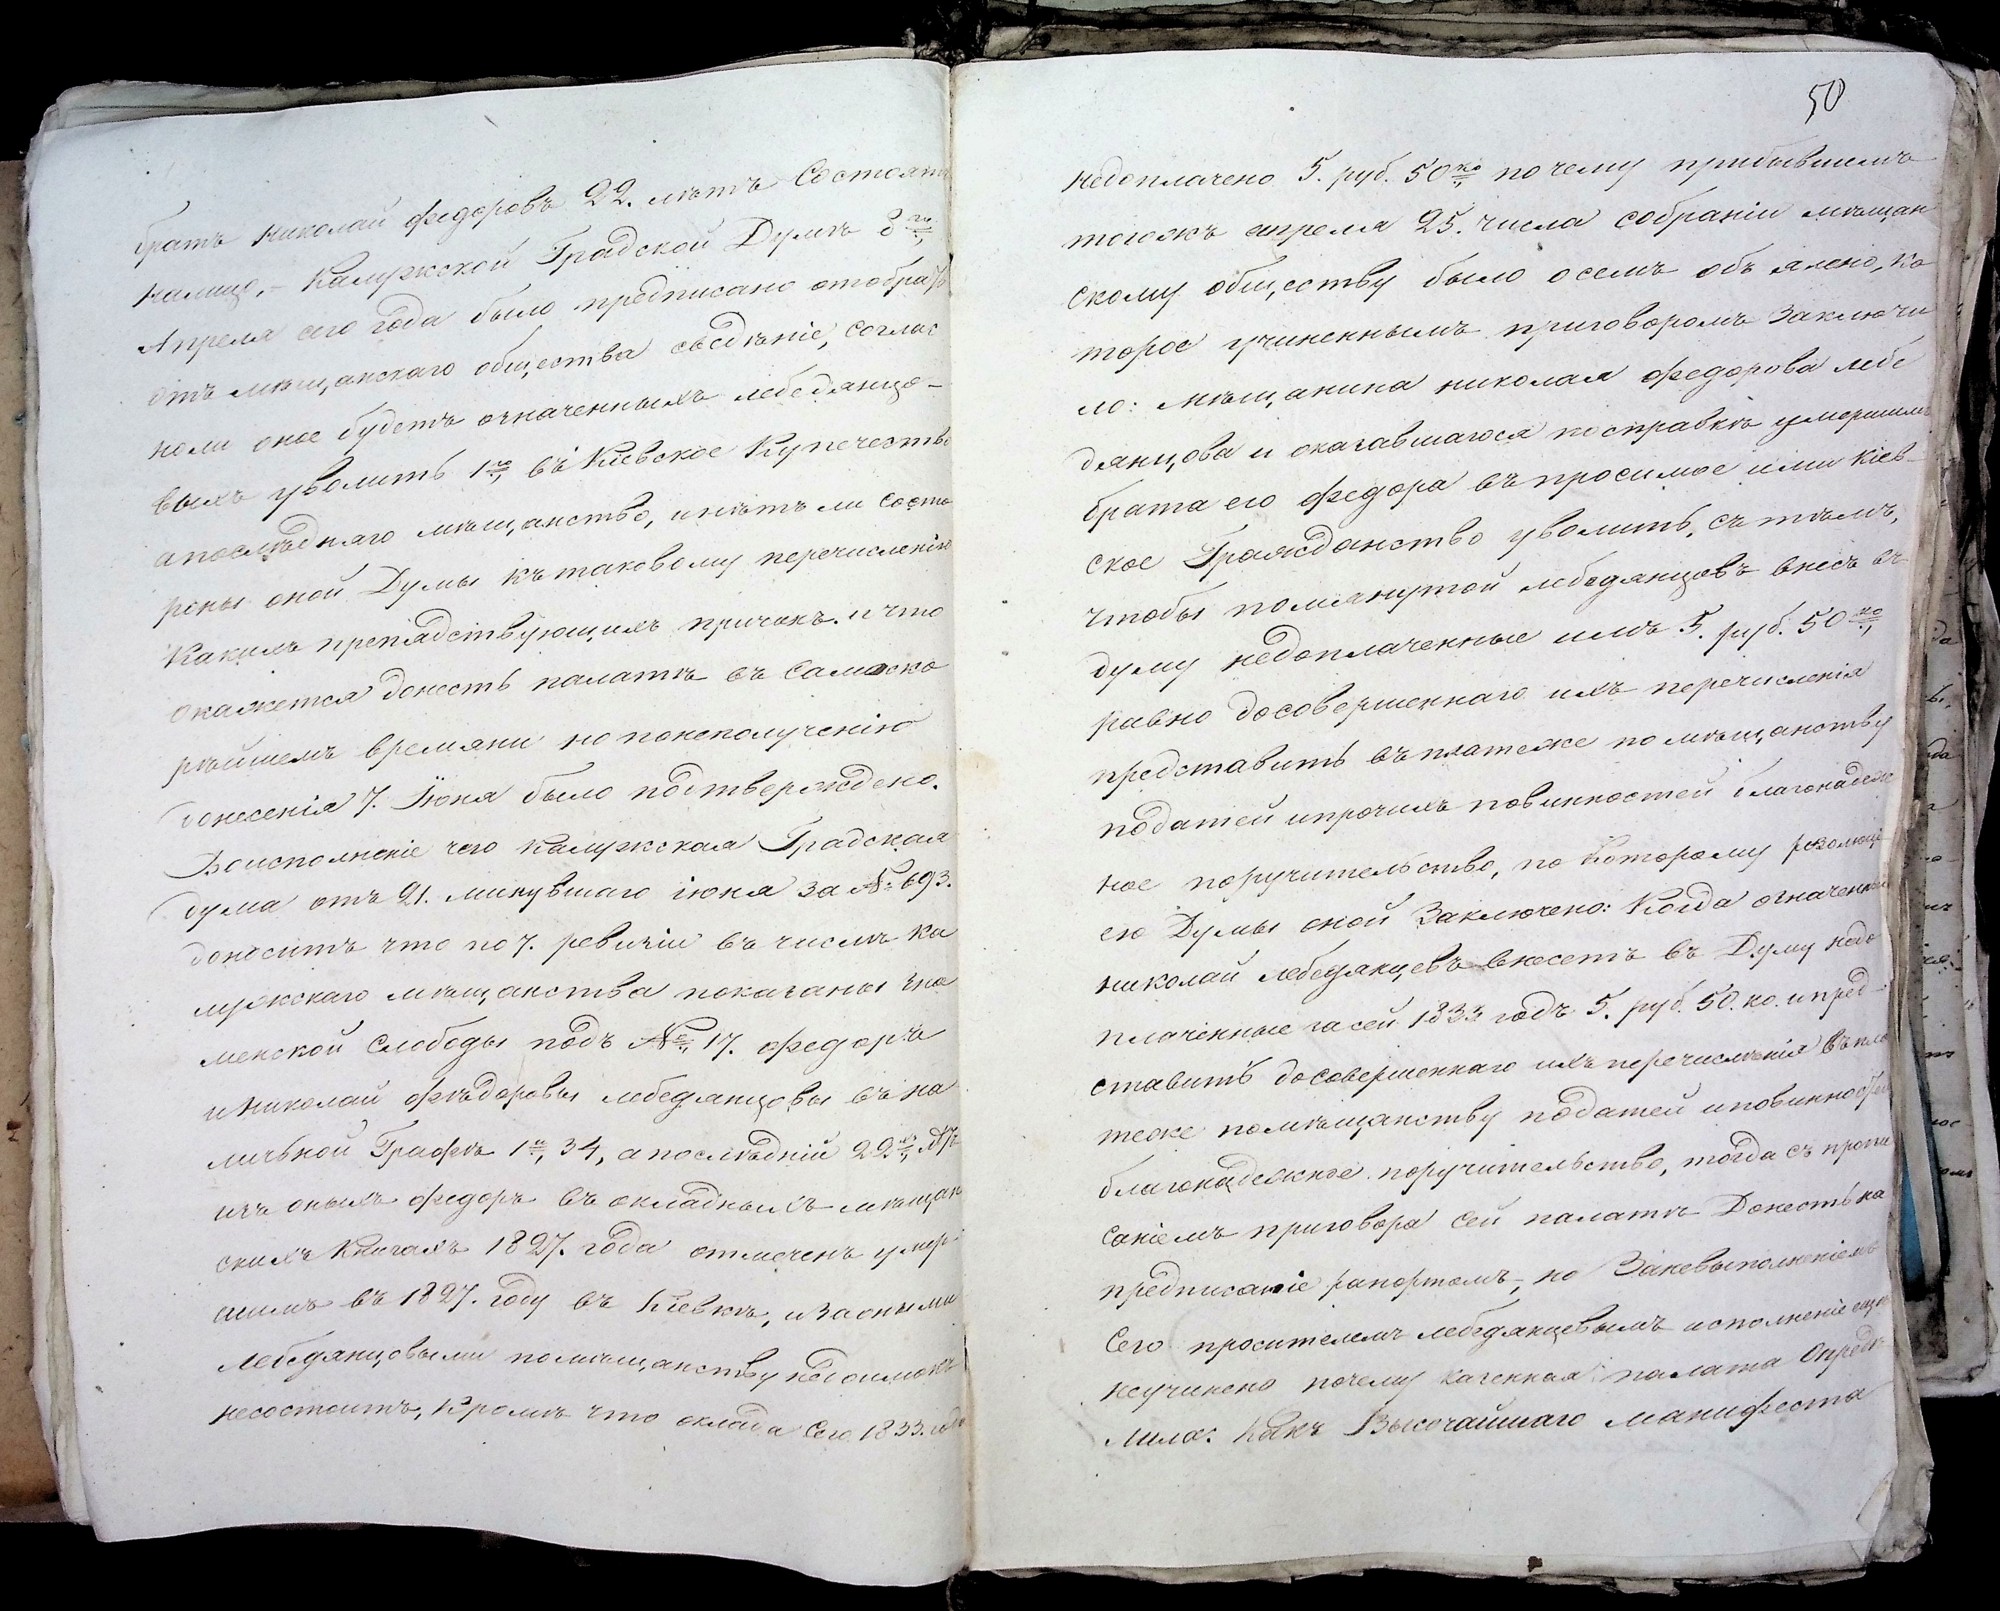 братъ Николай Федоровъ 22. лѣтъ Состоятъ
налицо, – Калужской Градской Думѣ 8го
Апреля сего года было предписано отобрать
отъ мѣщанскаго общества сведѣніе, соглас
ноли оное будетъ означенныхъ лебедянцо-
выхъ уволить 1го въ Кіевское Купечество
а послѣдняго мѣщанство, инѣтъ ли состо
роны оной Думы къ таковому перечисленію
Какихъ препядствующихъ причинъ. и что
окажется донесть палатѣ въ самоско
рѣйшемъ времяни но понеполученію
донесенія 7. Іюня было подтверждено.
Воисполненіе чего Калужская Градская
дума отъ 21. минувшаго іюня за № 693.
доноситъ что по 7. ревизіи въ числѣ ка
лужскаго мѣщанства показаны зна
менской Слободы подъ № 17. Федоръ
и Николай Фѣдоровы лебедянцовы въ на
личьной Графѣ 1й 34, а послѣдній 22хъ лѣтъ
изъ оныхъ Федоръ въ окладныхъ мѣщан
скихъ Книгахъ 1827. года отмеченъ умер-
шимъ въ 1827. году въ Кіевѣ, и За оными
Лебедянцовыми помѣщанству недоимокъ
несостоитъ, Кромѣ что оклада Сего 1833. года
50
недоплачено 5. руб. 50 ко почему прибывшемъ
тогожъ апреля 25. числа собраніи мѣщан
скому обществу было осемъ объявлено, ко
торое учиненнымъ приговоромъ Заключи
ло: мѣщанина николая Федорова лебе
дянцова и оказавшагося посправкѣ умершимъ
брата его Федора въ просимое ими Кіев-
ское Гражданство уволить, съ тѣмъ,
чтобы помянутой лебедянцовъ внесъ въ
думу недоплаченные имъ 5. руб. 50 ко
равно досовершеннаго ихъ перечисленія
представить въ платеже по мѣщанству
податей и прочихъ повинностей благонадеж
ное поручительство, по Которому резолюці
ею Думы оной Заключено: Когда означенный
николай лебедянцевъ внесетъ въ Думу недо
плаченные за сей 1833 годъ 5. руб 50. ко. и пред-
ставитъ досовершеннаго ихъ перечисленія въ пла
теже помѣщанству податей и повинностей
благонадежное поручительство, тогда съ пропи
саніемъ приговора сей палатѣ Донесть на
предписаніе рапортомъ, но Заневыполненіемъ
Сего просителемъ лебедянцевымъ исполненіе еще
неучинено почему казенная палата Опредѣ
лила: Какъ Высочайшаго манифеста